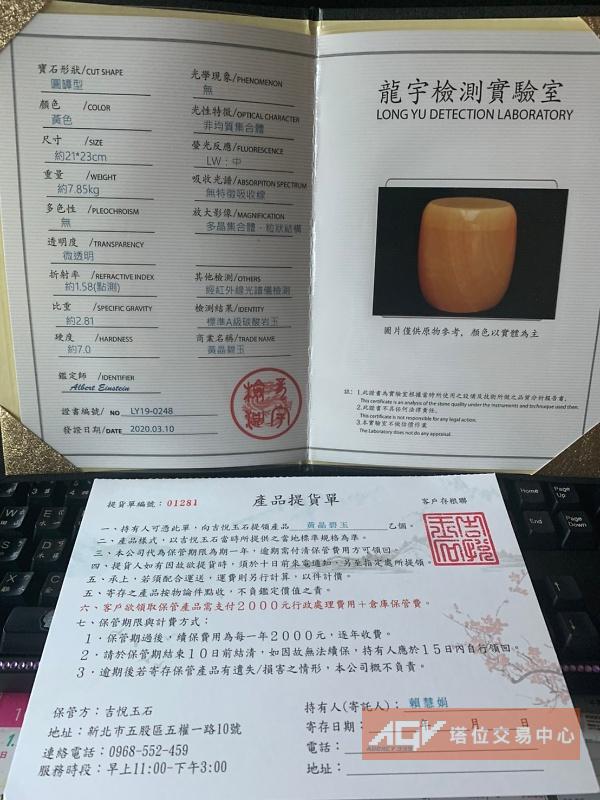 寶石形狀/CUT SHAPE
圓罈型
顏色 /COLOR
黃色
尺寸 /SIZE
約21*23cm
重量 /WEIGHT
約7.85kg
多色性 /PLEOCHROISM
無
透明度 /TRANSPARENCY
微透明
折射率 /REFRACTIVE INDEX
約1.58(點測)
比重 /SPECIFIC GRAVITY
約2.81
硬度 /HARDNESS
約7.0
鑑定師 /IDENTIFIER
Albert Einstein
證書編號/ NO LY19-0248
發證日期/DATE 2020.03.10
光學現象/PHENOMENON
無
光性特徵/OPTICAL CHARACTER
非均質集合體
螢光反應/FLUORESCENCE
LW：中
吸收光譜/ABSORPITON SPECTRUM
無特徵吸收線
放大影像/MAGNIFICATION
多晶集合體、粒狀結構
其他檢測/OTHERS
經紅外線光譜儀檢測
檢測結果/IDENTITY
標準A級碳酸岩玉
商業名稱/TRADE NAME
黃晶碧玉
龍宇檢測
龍宇檢測實驗室
LONG YU DETECTION LABORATORY
圖片僅供原物參考，顏色以實體為主
註：1.此證書為實驗室根據當時所使用之設備及技術所做之品質分析報告書。
This certificate is an analysis of the stone quality under the instruments and technique used then.
2.此證書不具任何法律責任。
This certificate is not responsible for any legal action.
3.本實驗室不做估價作業
The Laboratory does not do any appraisal.
Home
Page Up
End
Page Down
提貨單編號：01281
產品提貨單
客戶存根聯
吉悅玉石
一、持有人可憑此單，向吉悅玉石提領產品 黃晶碧玉 乙個。
二、產品樣式，以吉悅玉石當時所提供之當地標準規格為準。
三、本公司代為保管期限為期一年，逾期需付清保管費用方可領回。
四、提貨人如有因故欲提貨時，須於十日前來電通知，另至指定處所提領。
五、承上，若須配合運送，運費則另行計算，以件計價。
五、寄存之產品按物論件點收，不負鑑定價值之責。
六、客戶欲領取保管產品需支付2000元行政處理費用+倉庫保管費。
七、保管期限與計費方式：
1．保管期過後，續保費用為每一年2000元，逐年收費。
2．請於保管期結束10日前結清，如因故無法續保，持有人應於15日內自行領回。
3．逾期後若寄存保管產品有遺失/損害之情形，本公司概不負責。
保管方：吉悅玉石
地址：新北市五股區五權一路10號
連絡電話：0968-552-459
服務時段：早上11:00-下午3:00
持有人(寄託人)：賴慧娟
寄存日期： 年 月 日
電話：
地址：
AGV 塔位交易中心